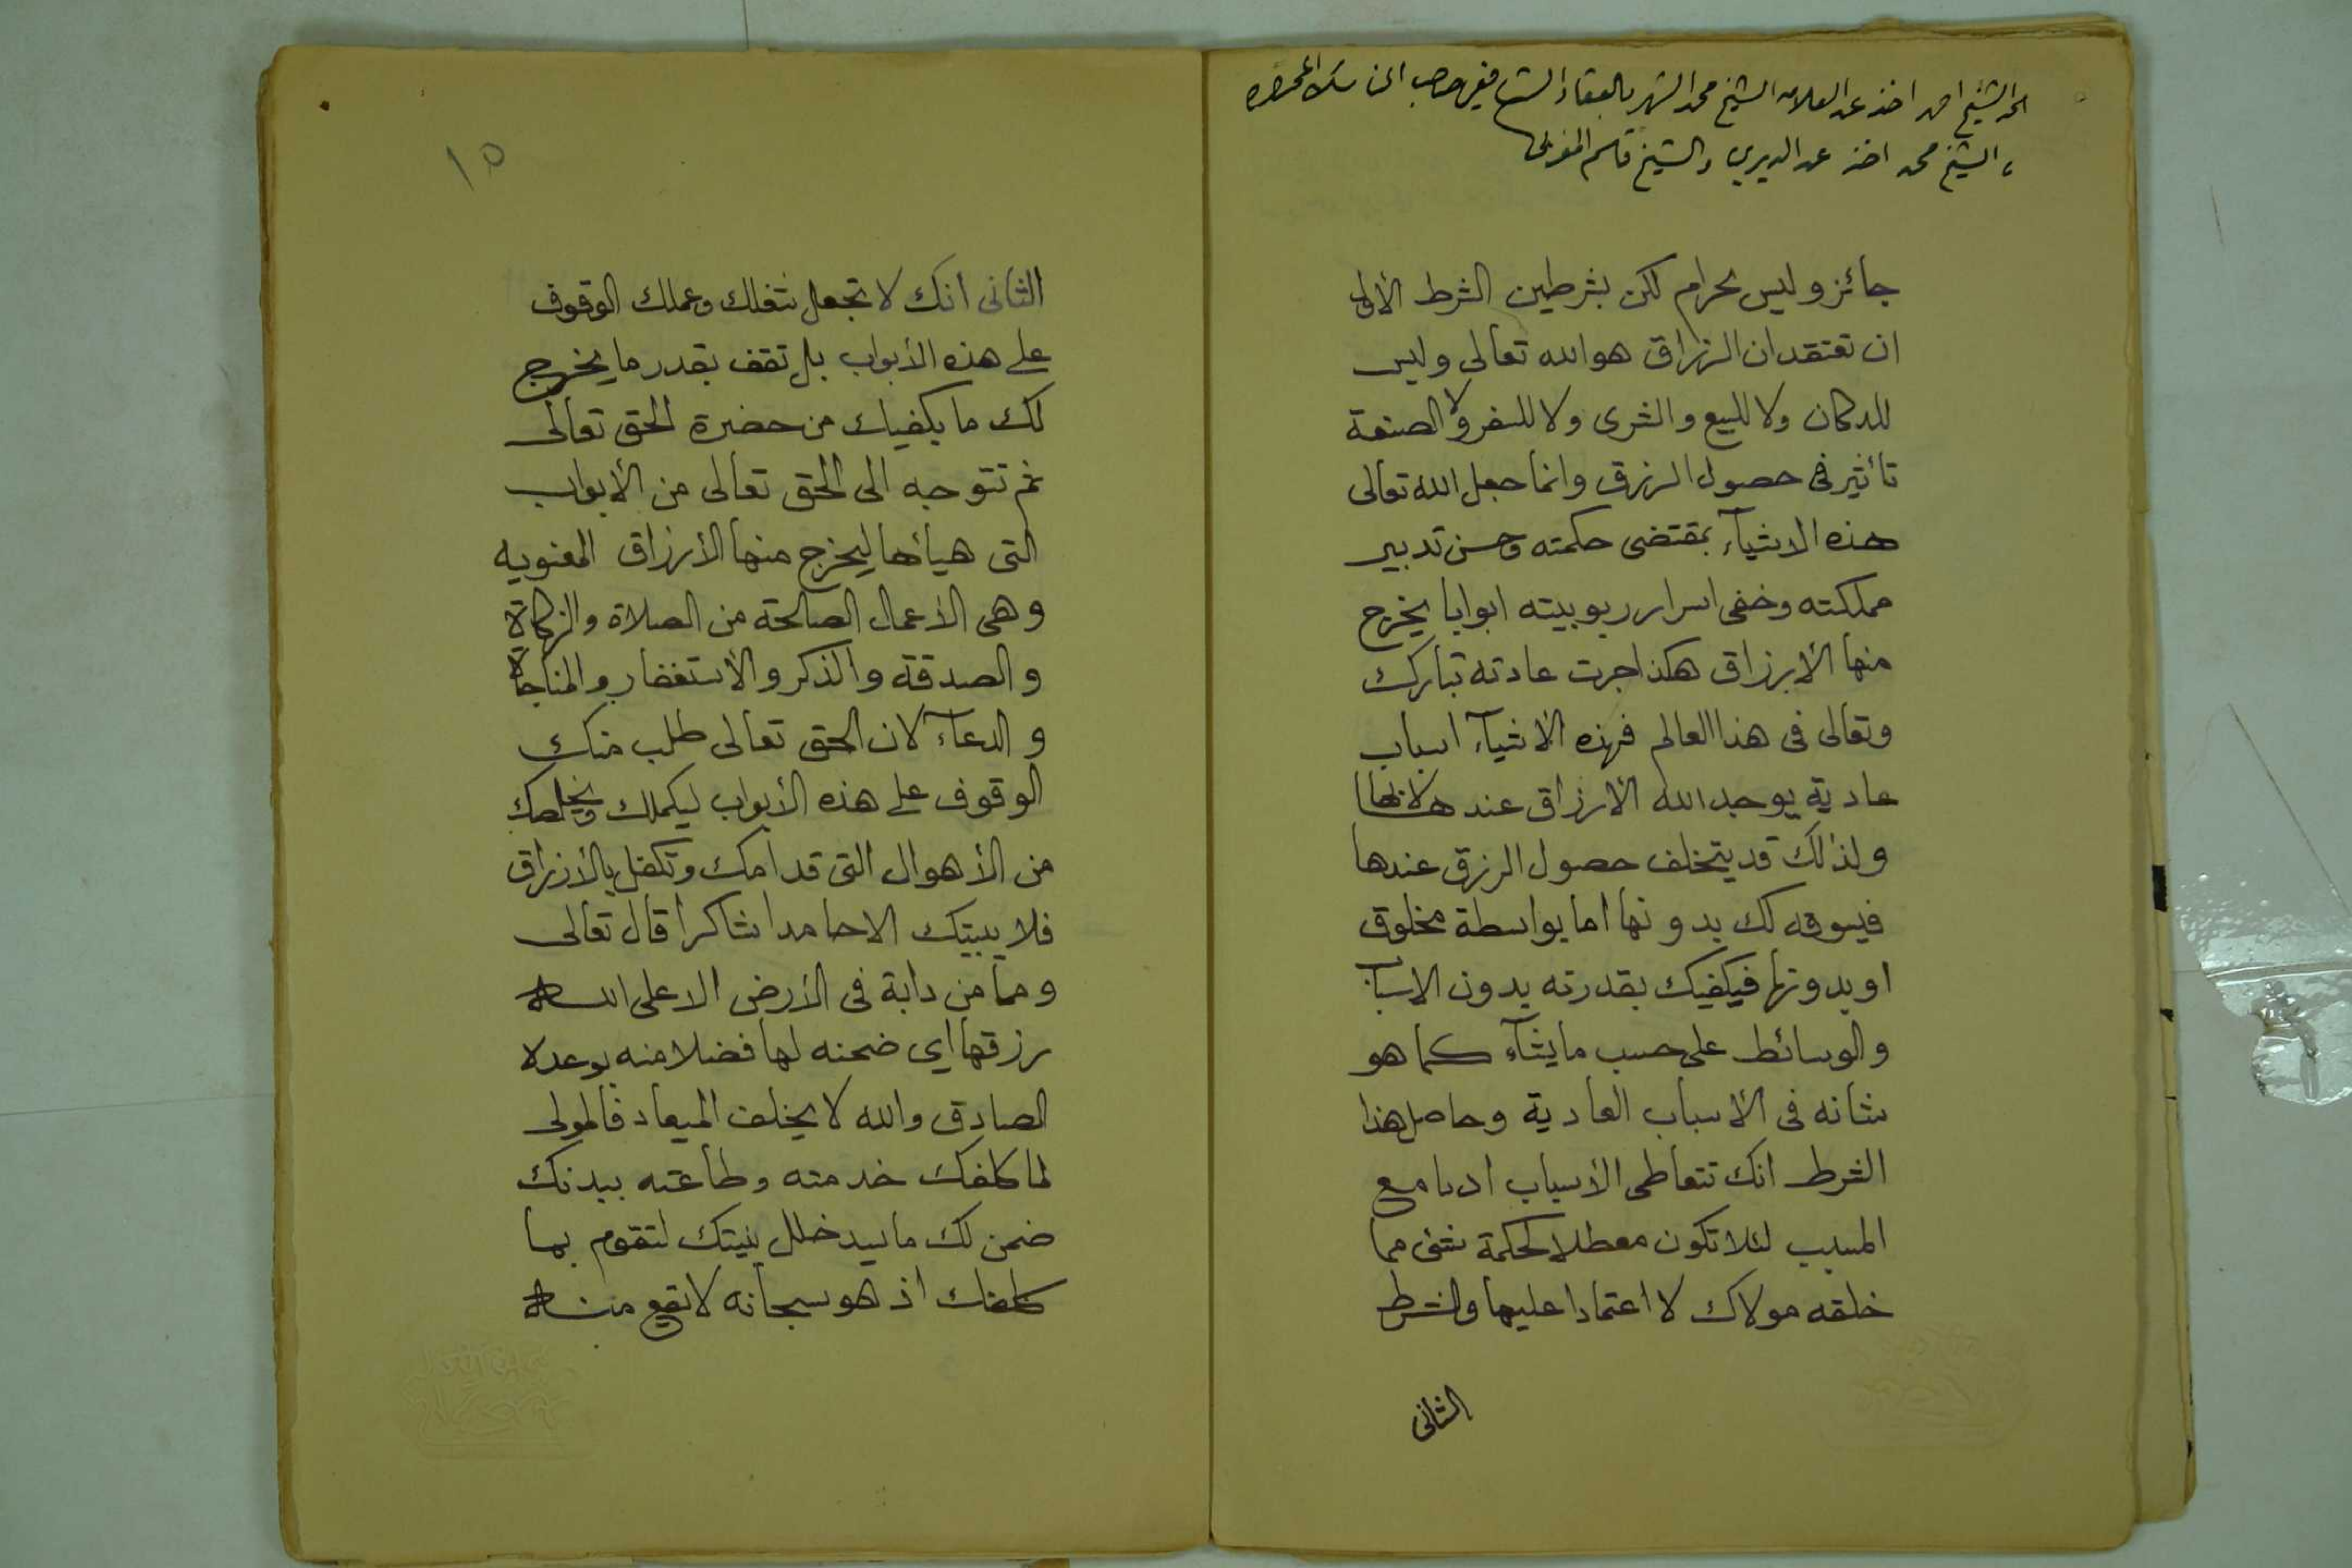 الشيخ احمد اخذ عن العلامه الشيخ محمد الشهير بالعقاد الشافعي
الشيخ محمد اخذ عن الديري والشيخ قاسم المغربي
جائز وليس بحرام لكن بشرطين الشرط الأول
ان تعتقد ان الرزاق هو الله تعالى وليس
للدكان ولا للبيع والشرى ولا للسفر ولا الصنعة
تأثير فى حصول الرزق وانما جعل الله تعالى
هذه الاشيآء بمقتضى حكمته وحسن تدبير
مملكته وخفى اسرار ربوبيته ابوابا يخرج
منها الأرزاق هكذا جرت عادته تبارك
وتعالى فى هذا العالم فهذه الأشيآء اسباب
عادية يوجد الله الأرزاق عندها لا بها
ولذلك قد يتخلف حصول الرزق عندها
فيسوقه لك بدونها اما بواسطة مخلوق
او بدونها فيكفيك بقدرته بدون الاسباب
والوسائط على حسب ما يشآء كما هو
شانه فى الأسباب العادية وحاصل هذا
الشرط انك تتعاطى الأسباب ادبا مع
المسبب لئلا تكون معطلا لحكمة شئ مما
خلقه مولاك لا اعتمادا عليها والشرط
الثانى
١٥
الثانى انك لا تجعل شغلك وعملك الوقوف
على هذه الأبواب بل تقف بقدر ما يخرج
لك ما يكفيك من حضرة الحق تعالى
ثم تتوجه الى الحق تعالى من الأبواب
التى هيأها ليخرج منها الأرزاق المعنويه
وهى الأعمال الصالحة من الصلاة والزكاة
والصدقة والذكر والأستغفار والمناجاة
والدعآء لان الحق تعالى طلب منك
الوقوف على هذه الأبواب ليكملك ويخلصك
من الأهوال التى قدامك وتكفل بالأرزاق
فلا يبيتك الا حامدا شاكرا قال تعالى
وما من دابة فى الأرض الا على الله
رزقها اي ضمنه لها فضلا منه بوعده
الصادق والله لا يخلف الميعاد فالمولى
لما كلفك خدمته وطاعته ببدنك
ضمن لك ما يسد خلل بنيتك لتقوم بما
كلفك اذ هو سبحانه لا يقع منه